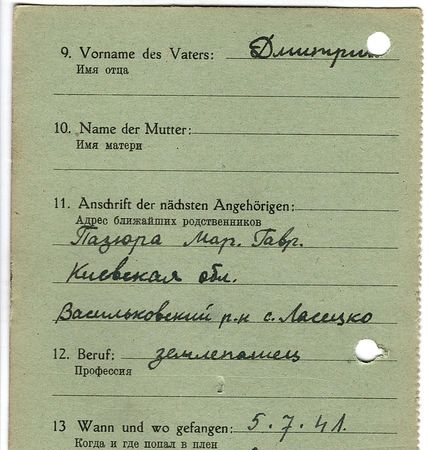 9. Vorname des Vaters: Дмитрий
Имя отца
10. Name der Mutter:
Имя матери
11. Anschrift der nächsten Angehörigen:
Адрес ближайших родственников
Пазюра Мар. Гавр.
Киевская обл.
Васильковский р-н с.
12. Beruf:
Профессия
13 Wann und wo gefangen: 5.7.41.
Когда и где попал в плен